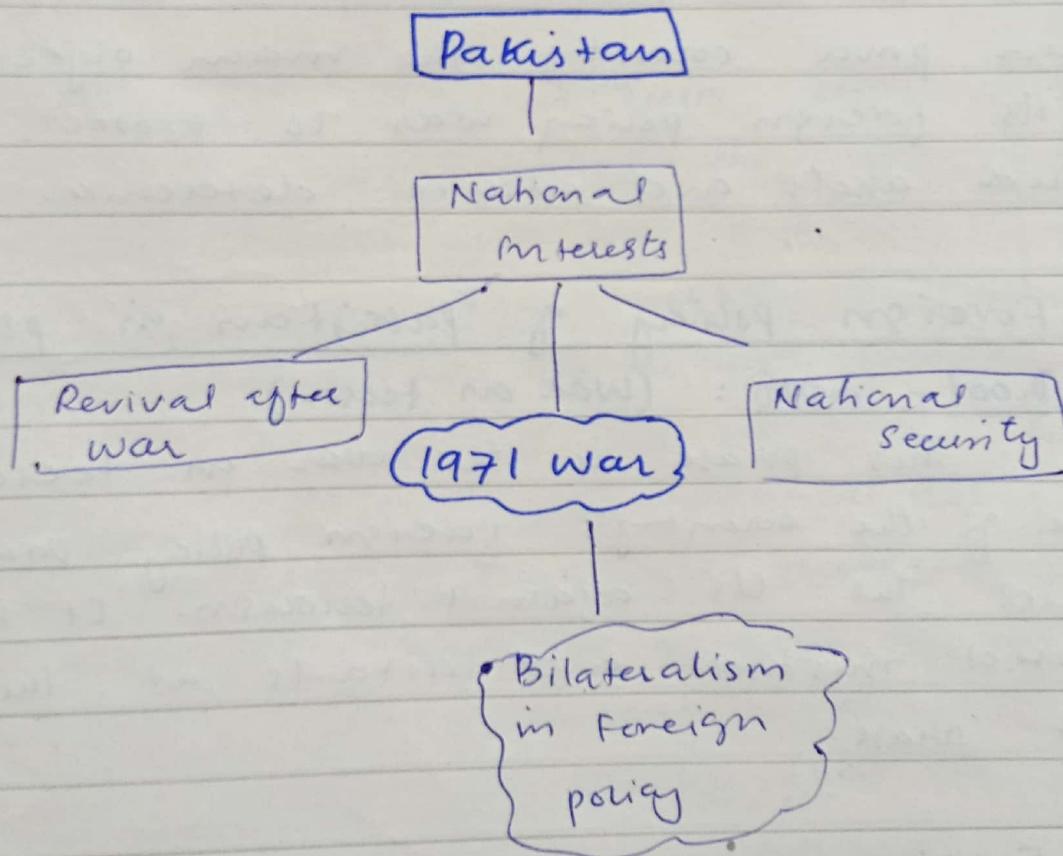 Pakistan
National
Interests
Revival after
war
1971 war
National
Security
Bilateralism
in Foreign
policy